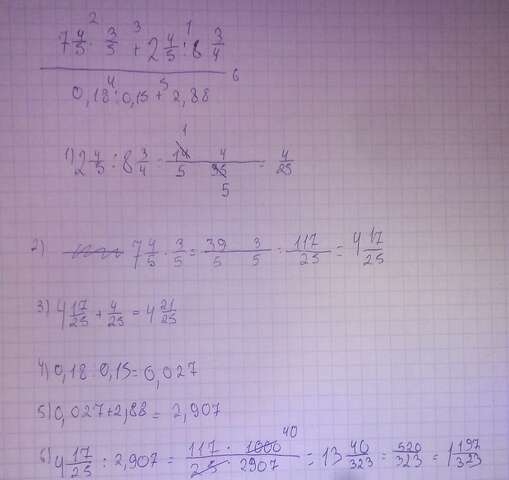 2 3 1
7 4/5 · 3/5 + 2 4/5 : 8 3/4
4 5 6
0,18 : 0,15 + 2,88
1) 2 4/5 : 8 3/4 = 14/5 · 4/35 = 4/25
1
5
2) 7 4/5 · 3/5 = 39/5 · 3/5 = 117/25 = 4 17/25
3) 4 17/25 + 4/25 = 4 21/25
4) 0,18 · 0,15 = 0,027
5) 0,027 + 2,88 = 2,907
6) 4 17/25 : 2,907 = 117 · 1000 40/25 · 2907 = 13 40/323 = 520/323 = 1 197/323